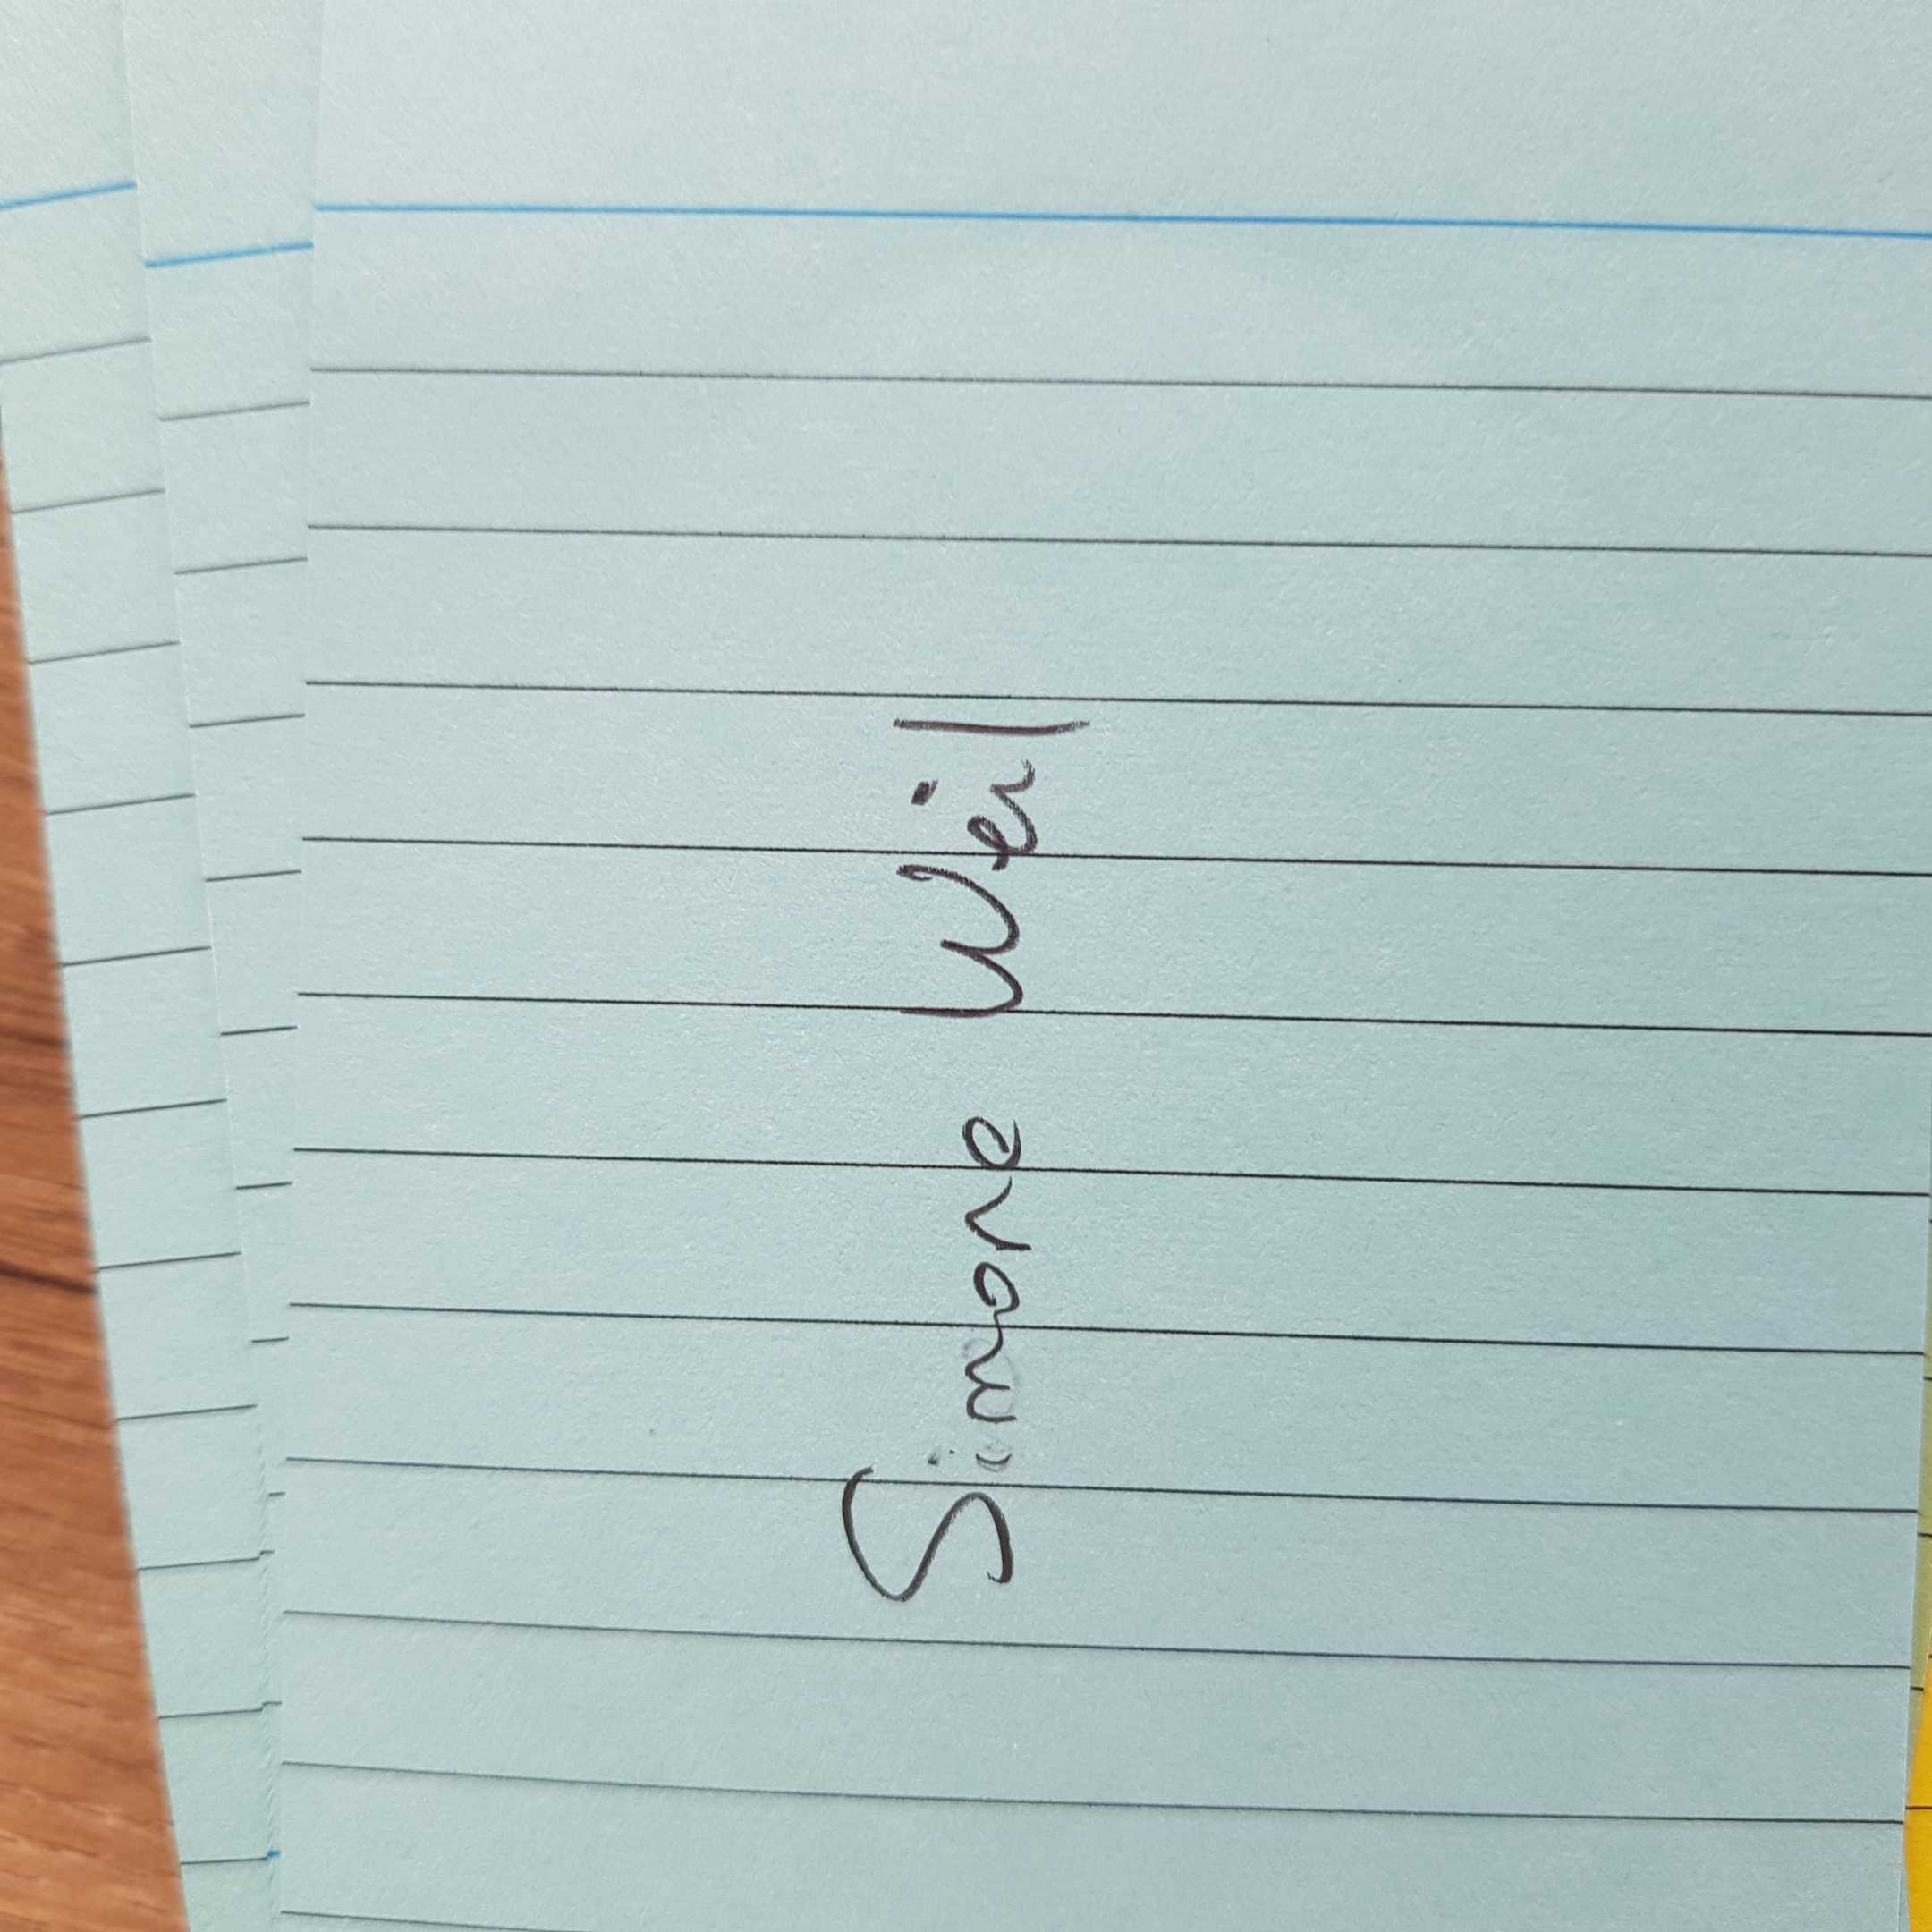 Simone Weil